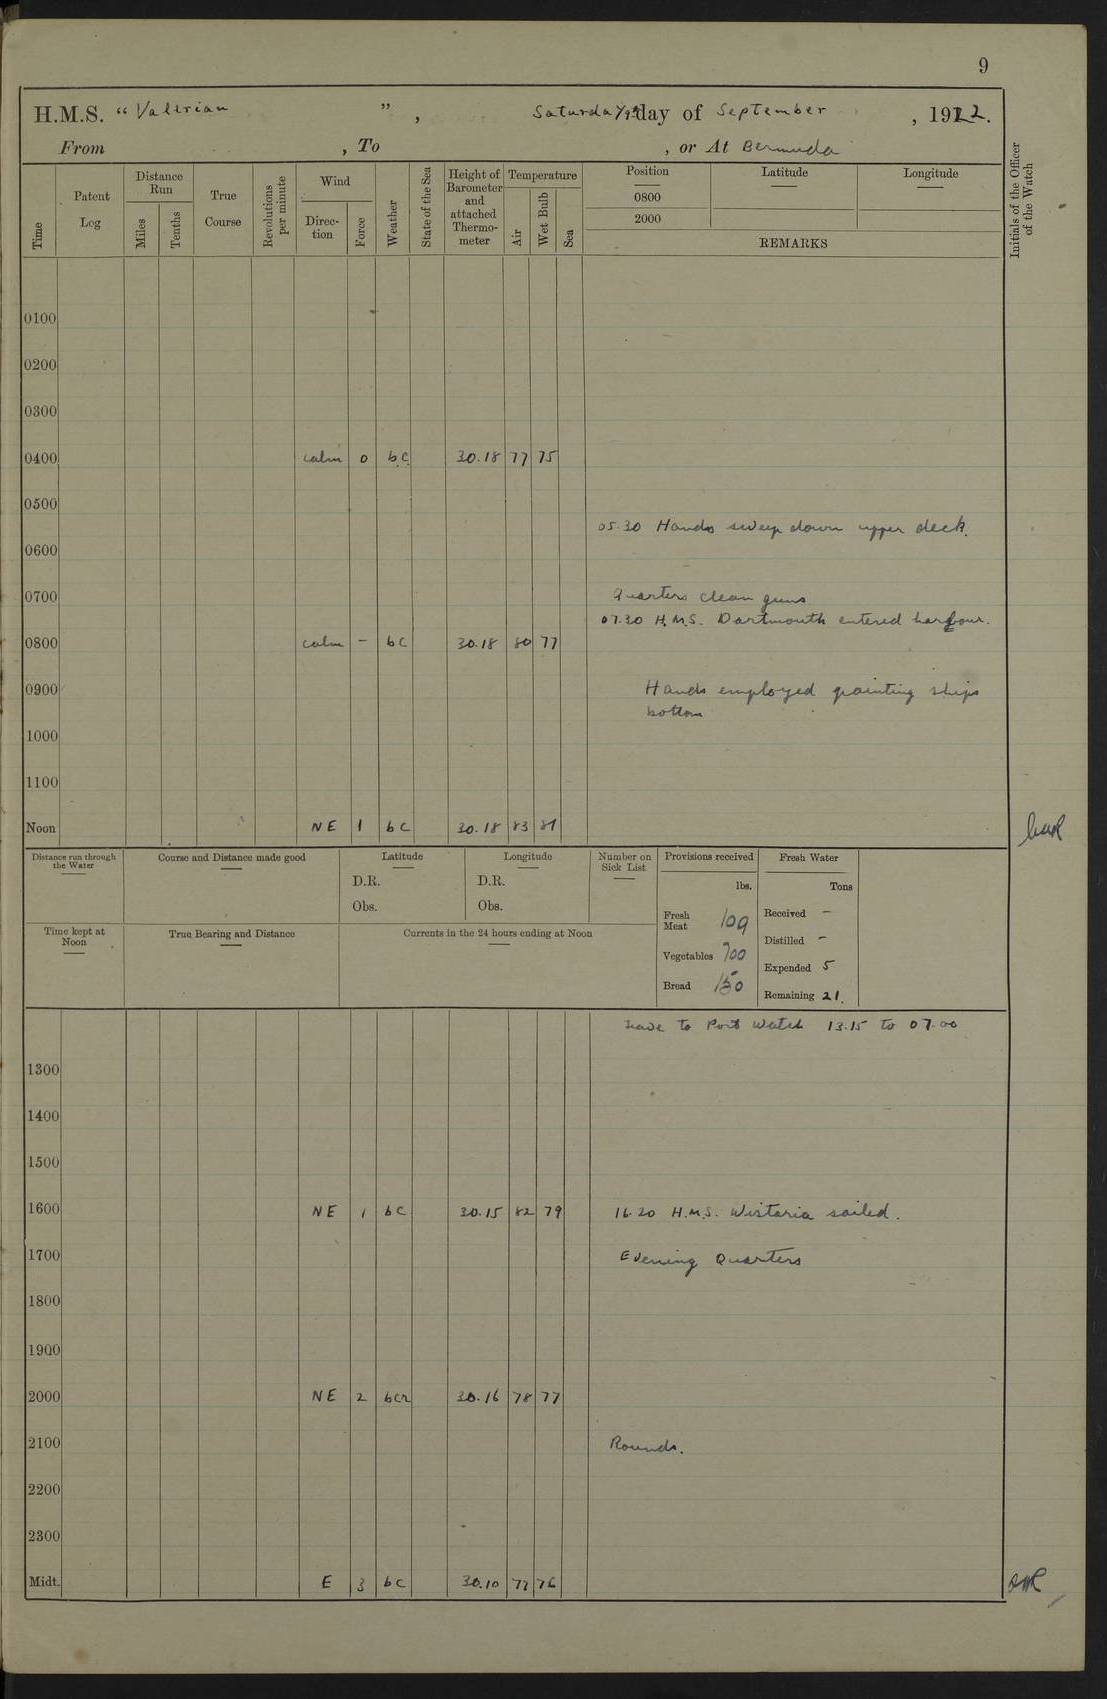 9
H.M.S. “ Valerian ” , Saturday day of September , 1922.
From , To , or At Bermuda
Time
Patent Log
Distance Run
Miles
Tenths
True Course
Revolutions per minute
Wind
Direc- tion
Force
Weather
State of the Sea
Height of Barometer and attached Thermo- meter
Temperature
Air
Wet Bulb
Sea
Position
Latitude
Longitude
0800
2000
REMARKS
Initials of the Officer of the Watch
0100
0200
0300
0400 calm 0 bc 30.18 77 75
0500
05.30 Hands sweep down upper deck.
0600
0700 Quarters clean guns
07.30 H.M.S. Dartmouth entered harbour.
0800 calm – bc 30.18 80 77
0900 Hands employed painting ships
bottom
1000
1100
Noon NE 1 bc 30.18 83 81
Distance run through the Water
Course and Distance made good
Latitude
D.R.
Obs.
Longitude
D.R.
Obs.
Number on Sick List
Provisions received
lbs.
Fresh Meat 109
Vegetables 700
Bread 150
Fresh Water
Tons
Received –
Distilled –
Expended 5
Remaining 21.
Time kept at Noon
True Bearing and Distance
Currents in the 24 hours ending at Noon
Leave to Port Watch 13.15 to 07.00
1300
1400
1500
1600 NE 1 bc 30.15 82 79 16.20 H.M.S. Wistaria sailed.
1700 Evening Quarters
1800
1900
2000 NE 2 bcr 30.16 78 77
2100 Rounds.
2200
2300
Midt. E 3 bc 30.10 77 76